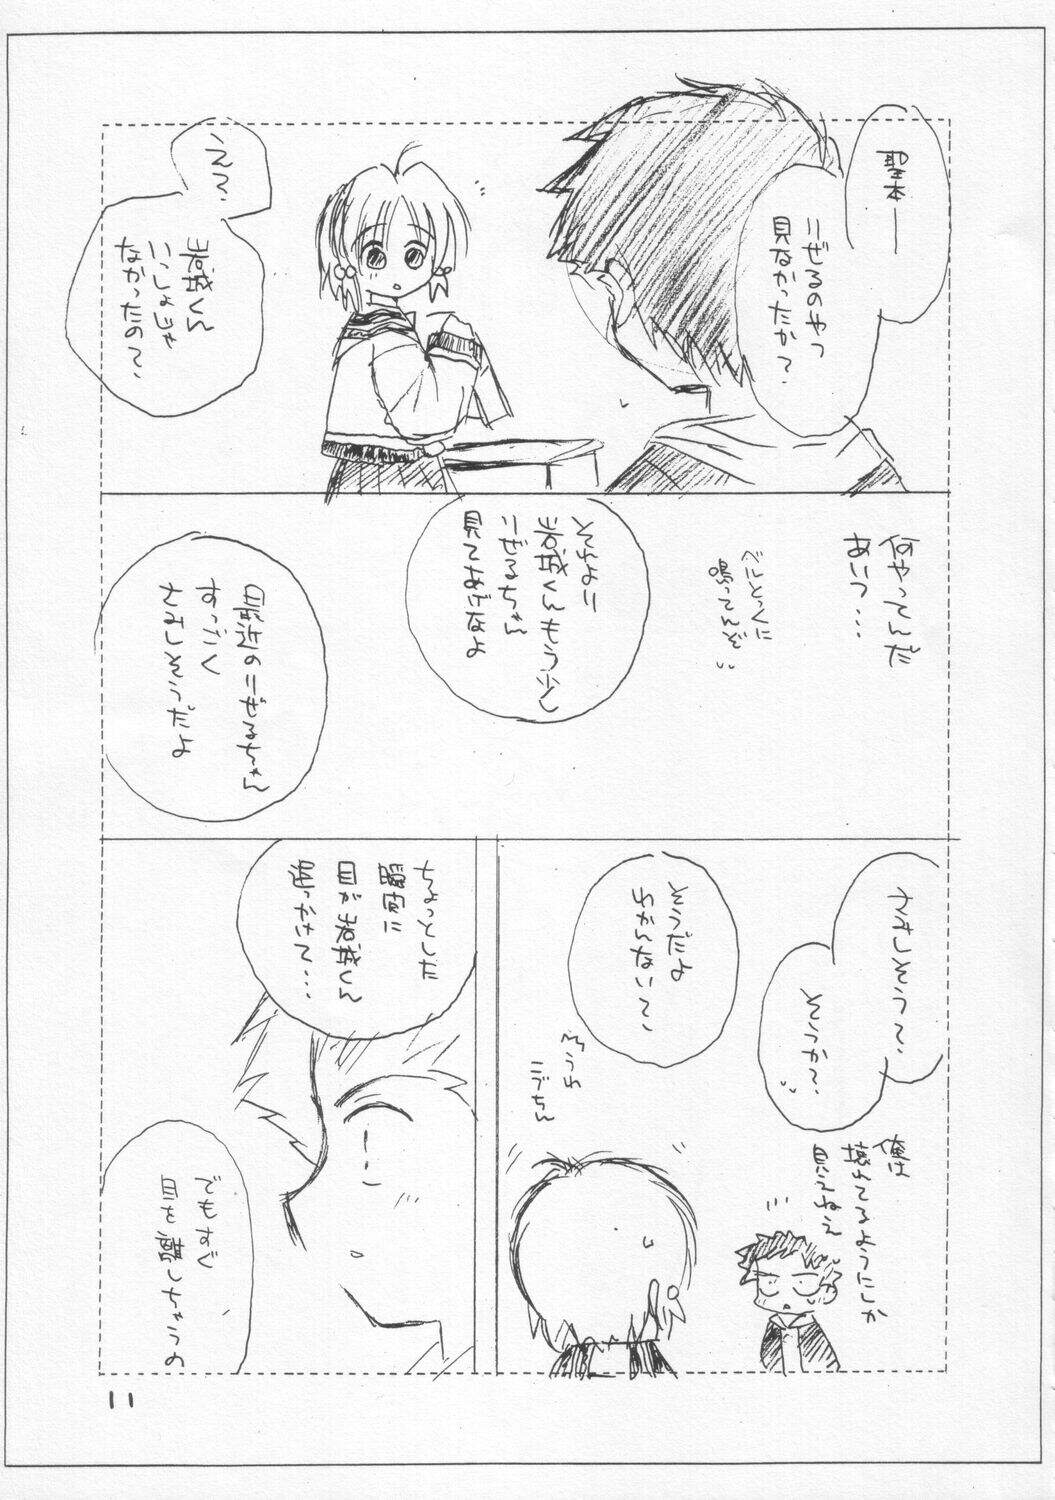 聖本――
リぜるのやつ
見なかったか?
え?
岩城くん
いっしょじゃ
なかったの?
何やってんだ
あいつ…
ベルとっくに
鳴ってんぞ
それより
岩城くんもう少し
リぜるちゃん
見てあげなよ
最近のリぜるちゃん
すっごく
さみしそうだよ
さみしそう?
そうか?
俺は
壊れてるようにしか
見えねえ
そうだよ
わかんない?
ちょっとした
瞬間に
目が岩城くん
追っかけて…
でもすぐ
目を離しちゃうの
11